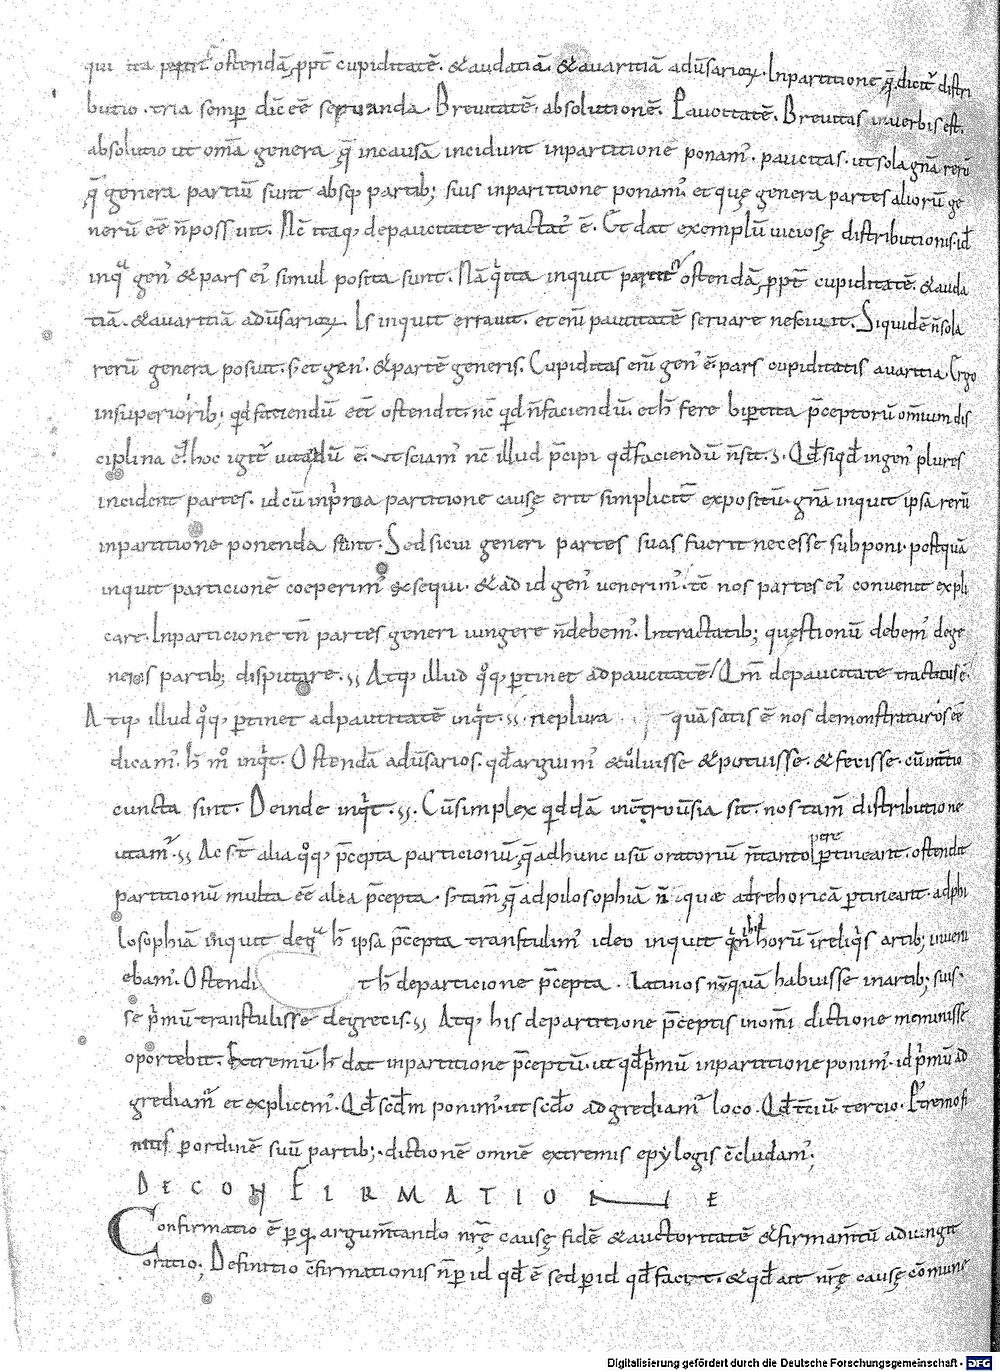 qui ita partit᷒ ostendā ꝓpt̄ cupiditatē. & audatiā. & auaritiā adu̅sarioꝝ. In partitione q̄ dicit᷒ distri
butio. tria semꝑ dic̄ eē seruanda. Breuitatē. absolutionē. Paucitatē. Breuitas in uerbis est.
absolutio ut om̄a genera q̄ in causā incidunt in partitione ponam᷒. paucitas. ut sola gn̄a rerū
q̄ genera partiū sunt absq; partib; suis in partitione ponam᷒ et quę genera partes aliorū ge
nerū eē n̄ possunt. Nc̄ itaq; de paucitate tractat᷒ ē. Et dat exemplū uiciosę distributionis. id
in q̄ gen᷒ & pars ei᷒ simul posita sunt. Nā q̍ ita inquit partit᷒ ostendā ꝓpt̄ cupiditatē. & auda
tiā. & auaritiā adu̅sarioꝝ. Is inquit errauit. et eni̅ paucitatē seruare nesciuit. Siquidē n̄ sola
rerū genera posuit. s; et gen᷒. & partē generis. Cupiditas eni̅ gen᷒ ē. pars cupiditatis auaritia. Ergo
in superiorib; qd̄ faciendū eēt ostendit. nc̄ qd̄ n̄ faciendū. et h̄ fere bipertita p̄ceptorū omnium dis
ciplina ē. hoc igit᷒ uitandū ē. ut sciam᷒ nc̄ illud p̄cipi qd̄ faciendū n̄ sit. Qd̄ si qd̄ in gen᷒ plures
incident partes. id cū in prima partitione causę erit simplicit̄ expositū. gn̄a inquit ipsa rerū
in partitione ponenda sunt. Sed sicui generi partes suas fuerit necesse subponi. postquā
inquit particionē coeperim᷒ exsequi. & ad id gen᷒ uenerim᷒. tc̄ nos partes ei᷒ conuenit expli
care. In particione tn̄ partes generi iungere n̄ debem᷒. In tractatib; quęstionū debem᷒ de ge
neris partib; disputare. Atq; illud qͦq; ꝑtinet ad paucitatē / Qm̄ de paucitate tractatus ē.
Atq; illud qͦq; ꝑtinet ad paucitatē inq̍t. ne plura quā satis ē nos demonstraturos eē
dicam᷒. h̄ mͦ inq̍t. Ostendā adu̅sarios. qd̄ arguim᷒ & uͦluisse & potuisse. & fecisse. cū
cuncta sint. Deinde inq̍t. Cū simplex qdda̅ in c̄trouersia sit. nos tam̄ distributione
utam᷒. Ac s̄t alia qͦq; p̄cepta particionū. q̄ ad hunc usū oratoriū n̄ tanto pere ꝑtineant. ostendit
partitionū multa eē alia p̄cepta. s; tam̄ q̄ ad philosophiā n̄ quae ad rethoricā ꝑtineant. ad phi
losophiā inquit de q̄ h̄ ipsa p̄cepta transtulim᷒ ideo inquit q̍ n̄ ibi horū in reliq̍s artib; inueni
ebam᷒. Ostendi t h̄ de particione p̄cepta. Latinos nūquā habuisse in artib; suis.
se p̍mū transtulisse de grecis. Atq; his de partitione p̄ceptis in omni dictione meminisse
oportebit. Extremū h̄ dat in partitione p̄ceptū. ut qd̄ p̍mū in partitione ponim᷒. id p̍mū ad
grediam᷒ et explicem᷒. Qd̄ scd̄m ponim᷒. ut scd̄o adgrediam᷒ loco. Qd̄ t̄ciū. tercio.
ꝑ ordinē suū partib; dictionē omnē extremis epylogis c̄cludam᷒;
DE CONFIRMATIONE
Confirmatio ē ꝑ qᷓ argum̄tando nr̄ę causę fidē & auctoritatē & firmam̄tū adiungit
oratio; Definitio c̄firmationis n̄ ꝑ id qd̄ ē sed ꝑ id qd̄ facit. & qd̄ ait nr̄ę causę cōmune
Digitalisierung gefördert durch die Deutsche Forschungsgemeinschaft - DFG